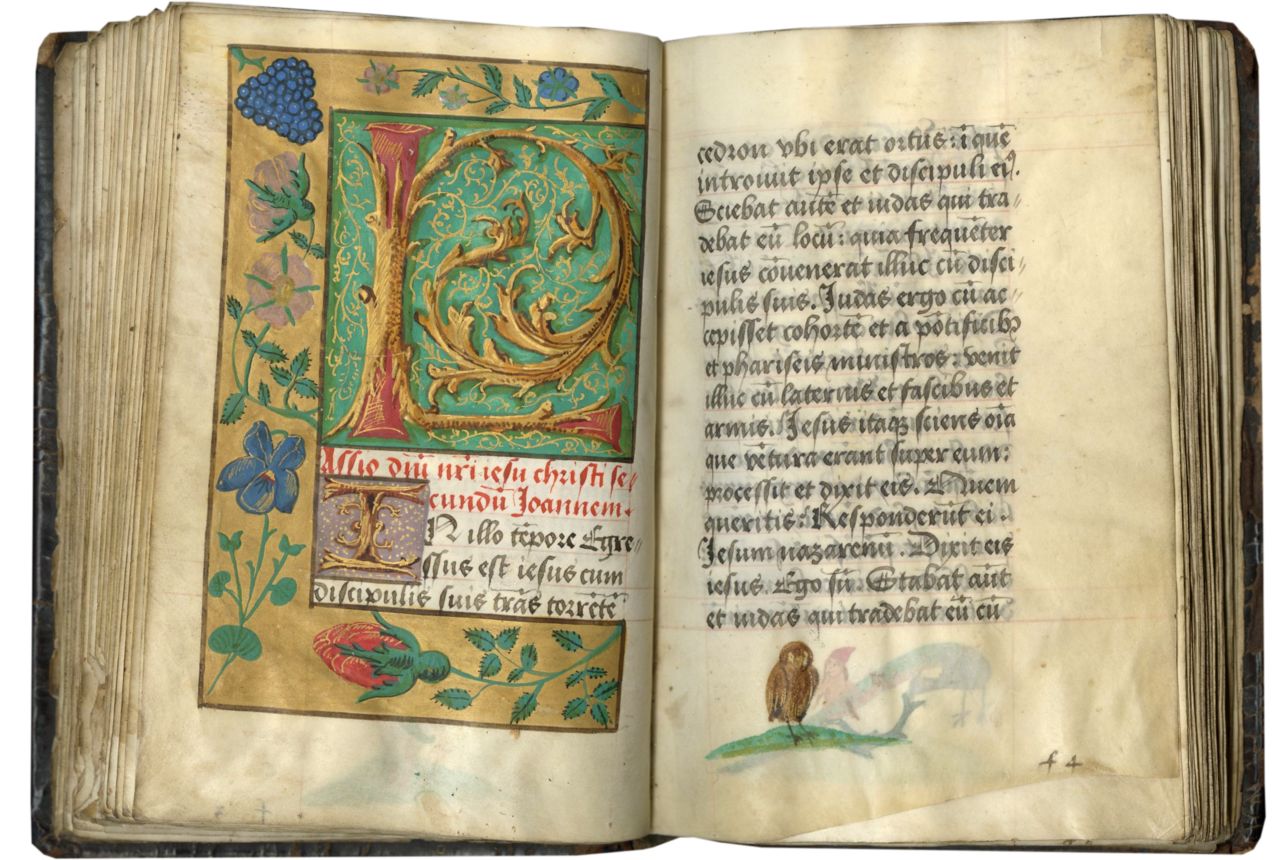 Passio dñi nr̃i iesu christi se⸗
cundũ Joannem.
IN illo tẽpore Egre⸗
ssus est iesus cum
discipulis suis trãs torrẽtẽ
cedron vbi erat ortus: ĩ quẽ
introiuit ipse et discipuli eiꝰ.
Sciebat autẽ et iudas qui tra⸗
debat eũ locũ: quia frequẽter
iesus cõuenerat illuc cũ disci⸗
pulis suis. Judas ergo cũ ac⸗
cepisset cohortẽ et a põtificibꝫ
et phariseis ministros: venit
illuc cũ laternis et fascibus et
armis. Jesus itaqꝫ sciens oĩa
que vẽtura erant super eum:
processit et dixit eis. Quem
queritis: Responderũt ei.
Jesum nazarenũ. Dixit eis
iesus. Ego sũ. Stabat aũt
et iudas qui tradebat eũ cũ
f 4